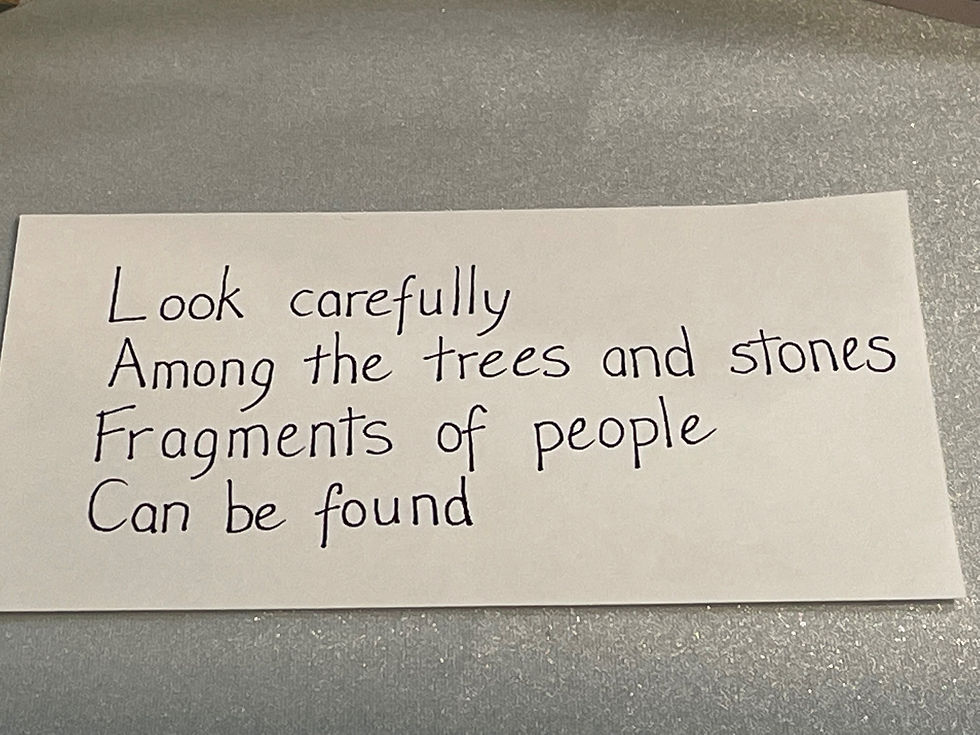 Look carefully
Among the trees and stones
Fragments of people
Can be found